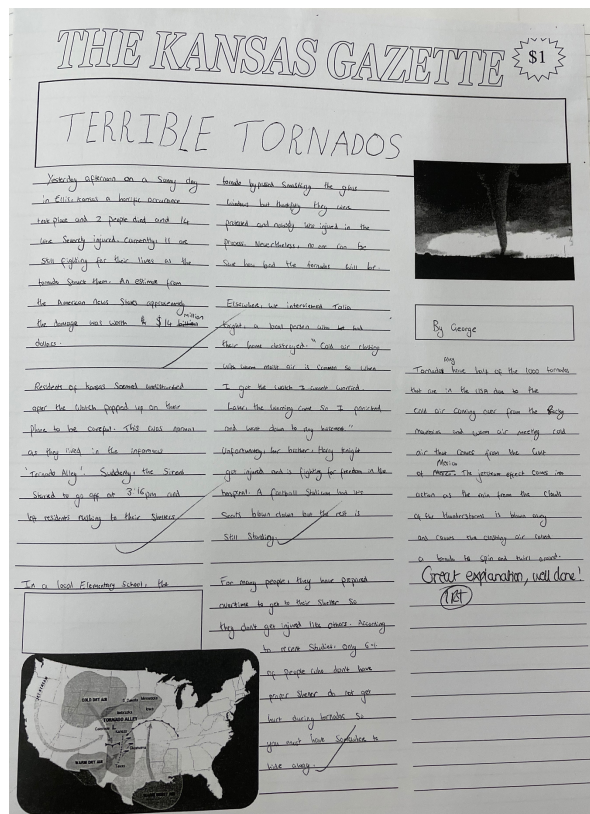 THE KANSAS GAZETTE
$1
TERRIBLE TORNADOS
Yesterday afternoon on a Sunny day
in Ellis, Kansas a horrific occurance
took place and 2 people died and 14
were Severely injured. Currently 11 are
Still fighting for their lives as the
tornado Struck them. An estimate from
the American News Shows approximately
the damage was worth $14 Million
dollars.
Residents of Kansas Seemed undisturbed
after the Watch popped up on their
phone to be careful. This was normal
as they lived in the infamous
'Tornado Alley'. Suddenly, the Sirens
Started to go off at 3:16pm and
left residents rushing to their Shelters.
In a local Elementary School, the
tornado bypassed Smashing the glass
windows but thankfully they were
protected and nobody was injured in the
process. Nevertheless, no one can be
Sure how bad the tornados will be.
Elsewhere, we interviewed Talia
Knight, a local person who had
their home destroyed. "Cold air clashing
with warm moist air is common So when
I got the watch I wasn't worried.
Later the warning came So I panicked
and went down to my basement"
Unfortunately, her brother, Harry Knight
got injured and is fighting for freedom in the
hospital. A football Stadium had its
Seats blown down but the rest is
Still Standing.
For many people, they have prepared
overtime to get to their Shelter So
they don't get injured like others. According
to recent Studies, only 6%
of people who don't have
proper Shelter do not get
hurt during tornados So
you must have Somewhere to
hide away.
By George
Tornado Alley have lots of the 1000 tornados
that are in the USA due to the
Cold air Coming over from the Rocky
Mountains and warm air meeting cold
air that comes from the Gulf
of Mexico. The jetstream effect comes into
action as the rain from the Clouds
of the thunderstorms is blown away
and causes the clashing air called
a tornado to Spin and twirl around.
Great explanation, well done!
1H
JET STREAM
COLD DRY AIR
S. Dakota
Minnesota
Iowa
Nebraska
TORNADO ALLEY
Colorado
Kansas
Oklahoma
Texas
WARM DRY AIR
WARM MOIST AIR